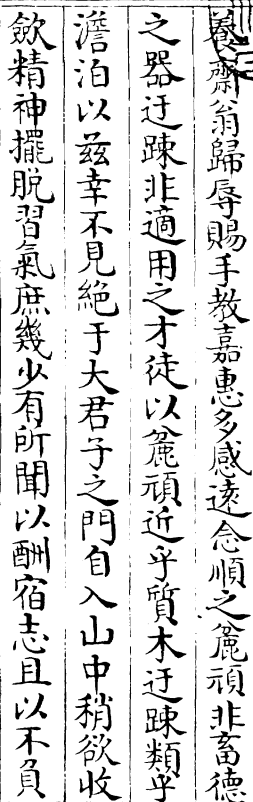 養齋翁歸辱賜手教嘉惠多感遠念順之麄頑非畜德
之器迂踈非適用之才徒以麄頑近乎質木迂踈類乎
澹泊以兹幸不見絶于大君子之門自入山中稍欲收
歛精神擺脱習氣庶幾少有所聞以酬宿志且以不負